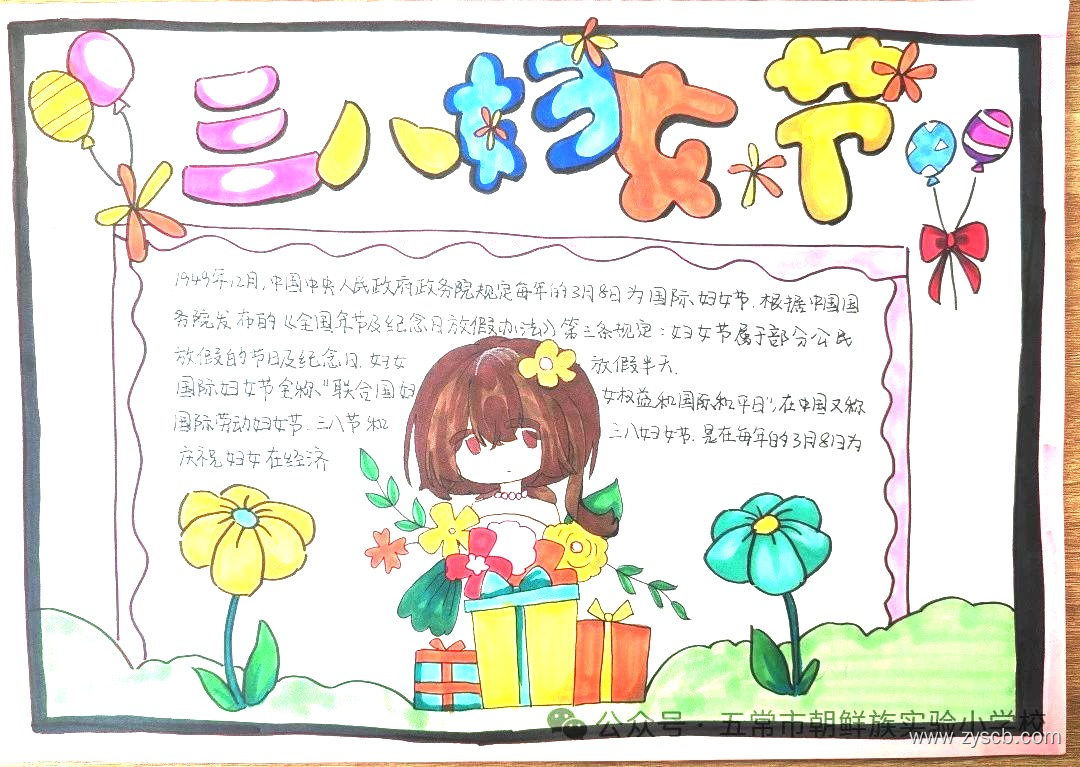 三八妇女节
1949年12月,中国中央人民政府政务院规定每年的3月8日为国际妇女节.根据中国国
务院发布的《全国年节及纪念日放假办法》第三条规定:妇女节属于部分公民
放假的节日及纪念日.妇女 放假半天.
国际妇女节全称"联合国妇 女权益和国际和平日",在中国又称
国际劳动妇女节.三八节和 三八妇女节.是在每年的3月8日为
庆祝妇女在经济
公众号·五常市朝鲜族实验小学校
www.zyscb.com